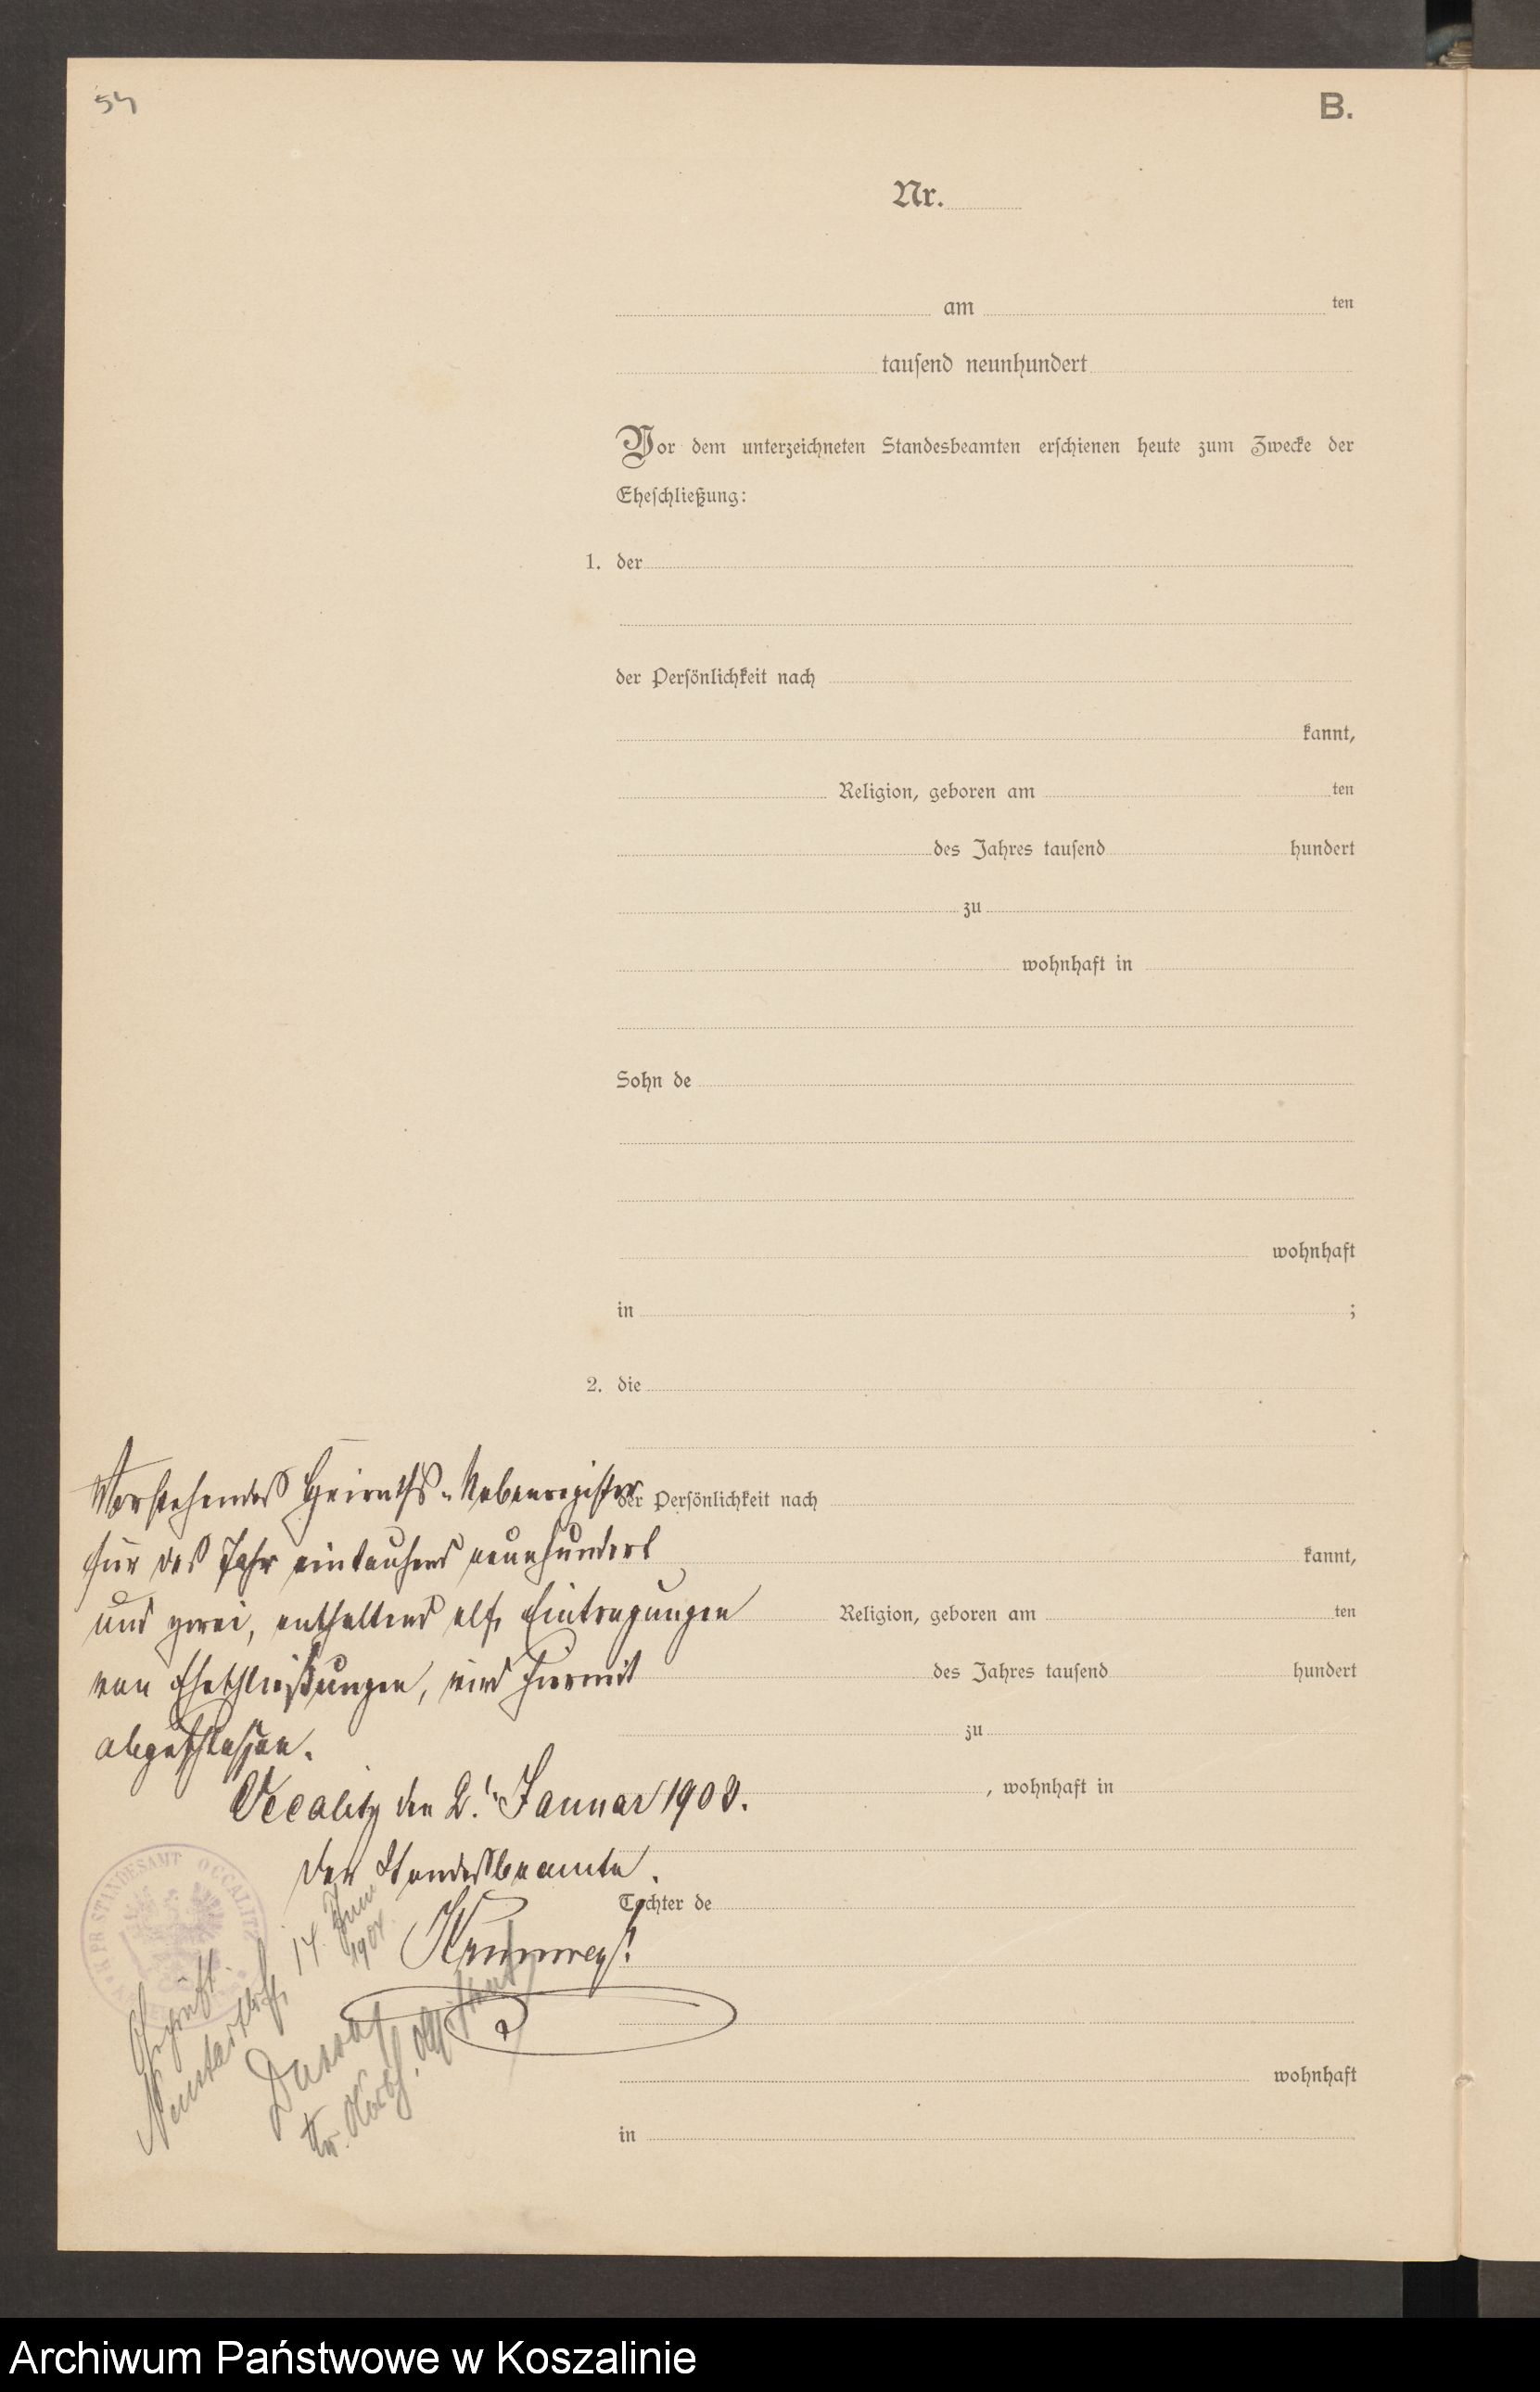 54
B.
Nr.
am ten
tausend neunhundert
Vor dem unterzeichneten Standesbeamten erschienen heute zum Zwecke der
Eheschließung:
1. der
der Persönlichkeit nach
kannt,
Religion, geboren am ten
des Jahres tausend hundert
zu
wohnhaft in
Sohn de
wohnhaft
in ;
2. die
Vorstehendes Heiraths-Nebenregister
der Persönlichkeit nach
für das Jahr eintausend neunhundert
kannt,
und zwei, enthaltend elf Eintragungen
Religion, geboren am ten
von Eheschließungen, wird hiermit
des Jahres tausend hundert
abgeschlossen.
zu
Occalitz den 2. Januar 1903.
, wohnhaft in
Der Standesbeamte.
STANDESAMT OCCALITZ
Tochter de
Geprüft.
14. Juni
1904
wohnhaft
in
Archiwum Państwowe w Koszalinie